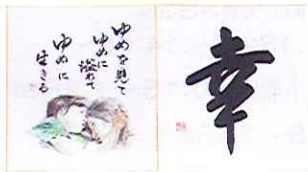 ゆめを見て
ゆめに
溢れて
ゆめに
生きる
幸